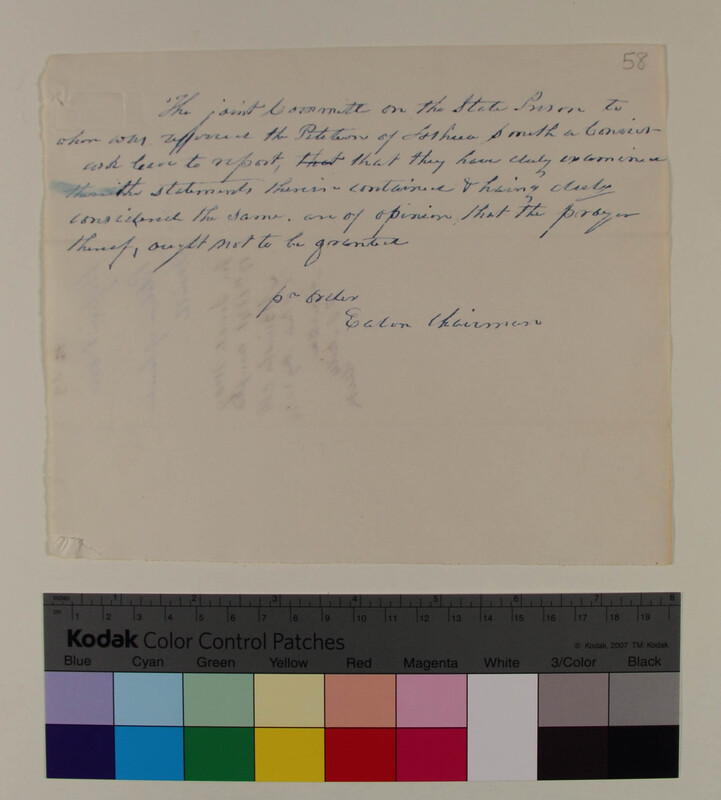 58
The joint Committe on the State Prison to
whom was referred the Petition of Joshua Smith a Convict
ask leave to report, that that they have duly examined
the statements therein contained & having duly
considered the same. are of opinion, that the prayer
thereof, ought not to be granted
pr order
Eaton Chairman
inches 1 2 3 4 5 6 7 8
cm 1 2 3 4 5 6 7 8 9 10 11 12 13 14 15 16 17 18 19
Kodak Color Control Patches
© Kodak, 2007 TM: Kodak
Blue Cyan Green Yellow Red Magenta White 3/Color Black